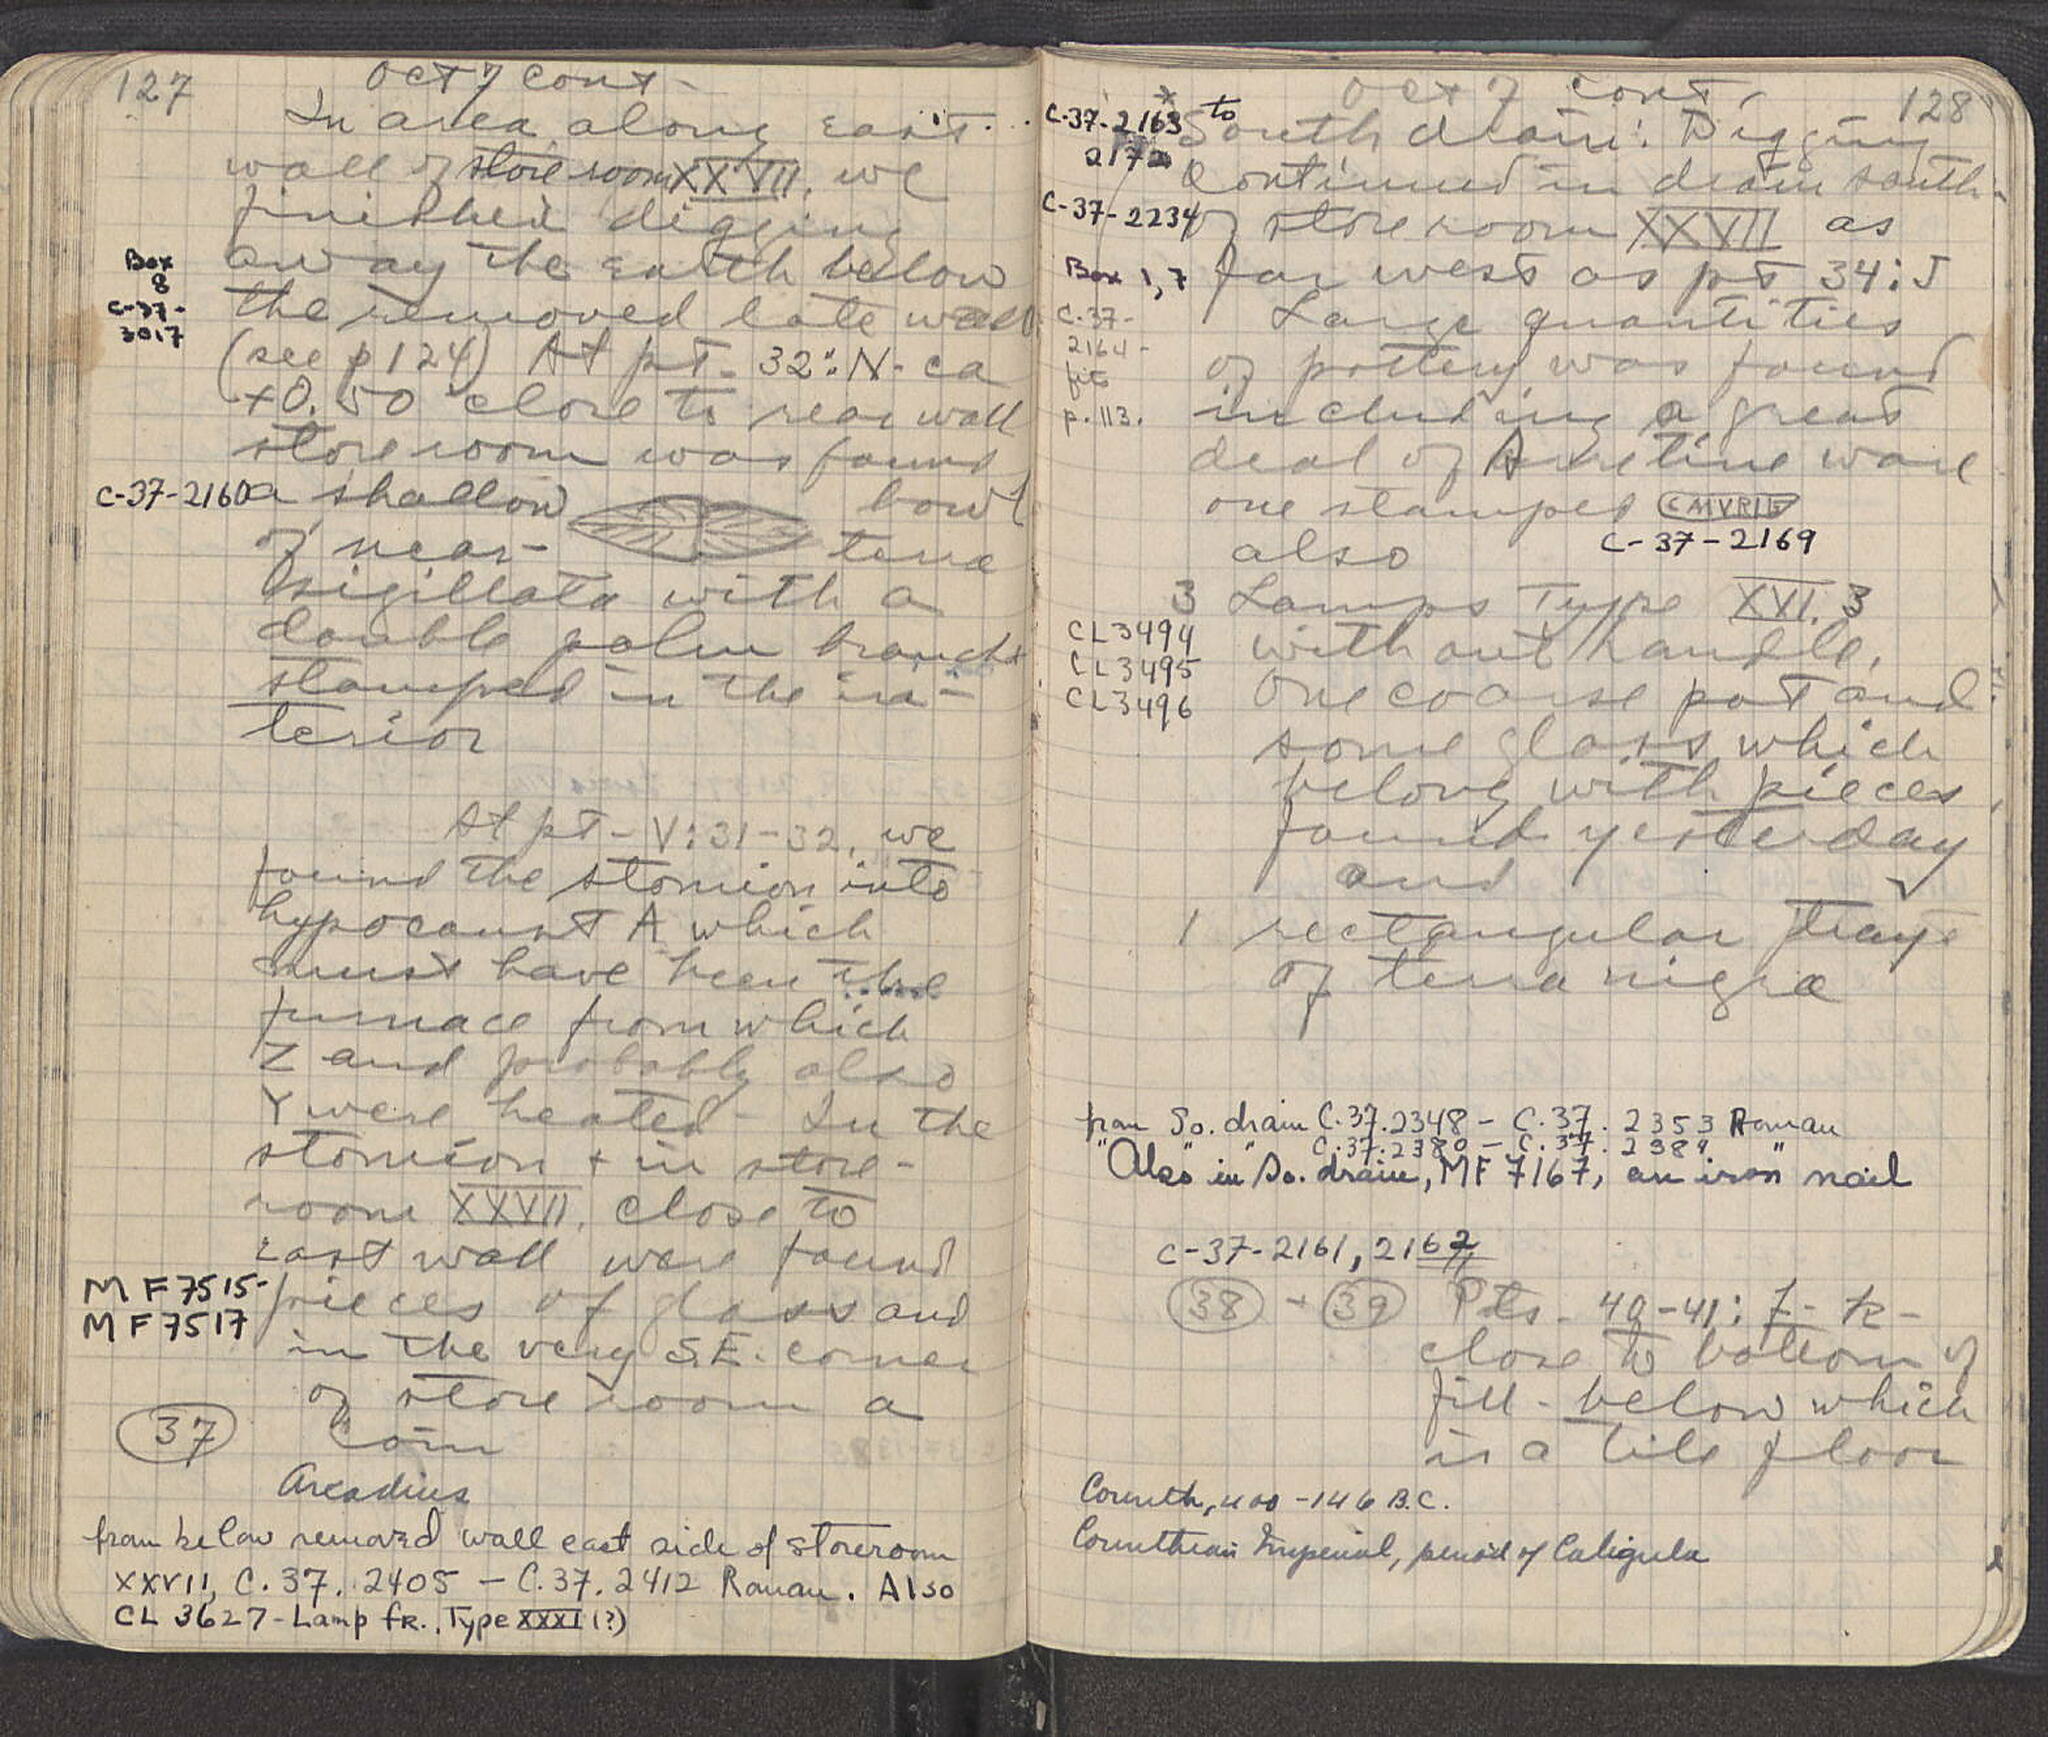 127
Oct 7 cont-
In area along east
wall of store room XXVII, we
finished digging
away the earth below
Box
8
C-37-
3017
the removed late wall
(see p 124) At pt. 32:N- ca
+0.50 close to rear wall
store room was found
C-37-2160 a shallow bowl
of near- terra
sigillata with a
double palm branch
stamped in the in-
terior
At pt- V:31-32, we
found the stomion into
hypocaust A which
must have been the
furnace from which
Z and probably also
Y were heated- In the
stomion + in store-
room XXVII, close to
east wall were found
MF7515-
MF7517
pieces of glass and
in the very S.E. corner
of store room a
37 coin
Arcadius
from below removed wall east side of storeroom
XXVII, C.37.2405 - C.37.2412 Roman. Also
CL 3627 - Lamp fr., Type XXXI (?)
Oct 7 cont,
128
C-37-2163 to
2172
*
South drain: Digging
continued in drain south
C-37-2234
of store room XXVII as
Box 1,7
far west as pt 34:J
C-37-
2164-
fits
p. 113.
Large quantities
of pottery was found
including a great
deal of Arretine ware
one stamped CMVRIE
C-37-2169
also
3 Lamps Type XVI, 3
CL3494
CL3495
CL3496
without handle,
One coarse pot and
some glass which
belong with pieces
found yesterday
and
1 rectangular tray
of terra nigra
from So. drain C.37.2348 - C.37.2353 Roman
" " " C.37.2380 - C.37.2389 "
Also in So. drain, MF 7167, an iron nail
C-37-2161, 2162
38 + 39 Pts- 40-41: J- K-
close to bottom of
fill- below which
is a tile floor
Corinth, 400-146 B.C.
Corinthian Imperial, period of Caligula